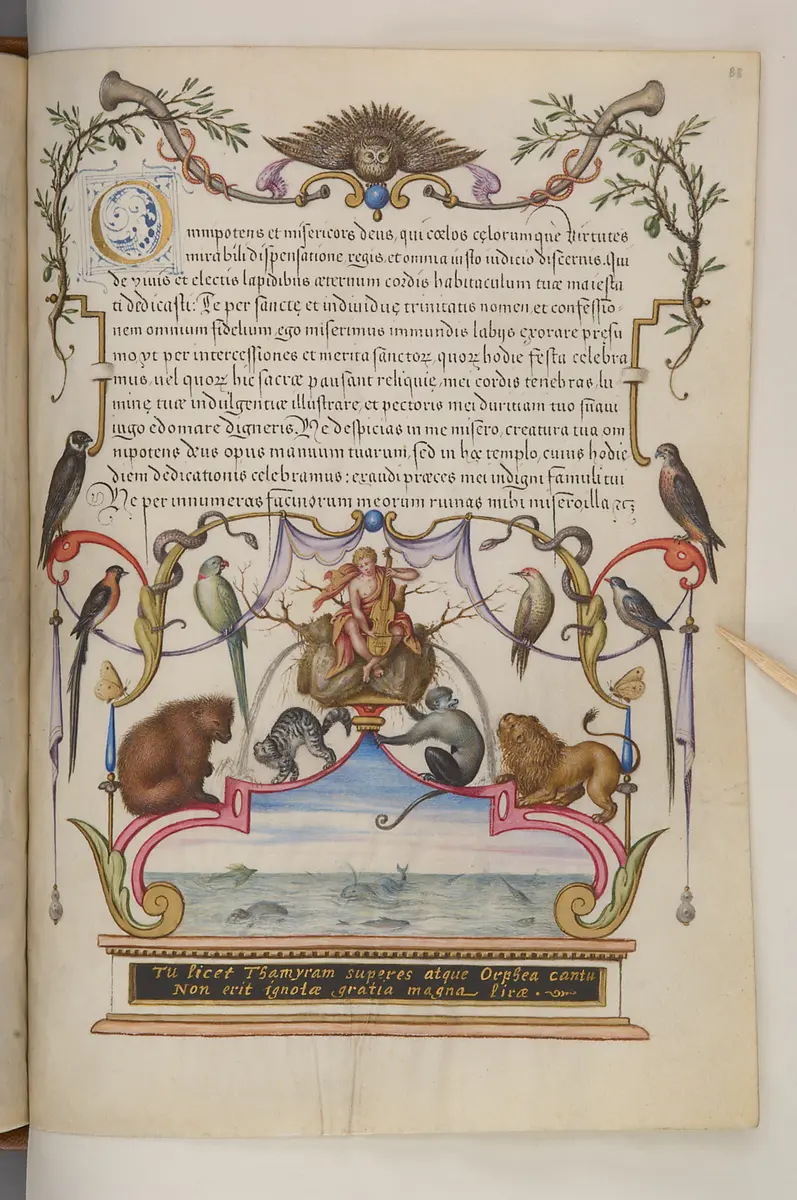 88
Omnipotens et misericors deus, qui cœlos cęlorumque Virtutes
mirabili dispensatione regis, et omnia iusto iudicio discernis. Qui
de viuis et electis lapidibus æternum cordis habitaculum tuæ maiesta
ti dedicasti: Te per sanctę et indiuiduę trinitatis nomen, et confessio=
nem omnium fidelium, ego miserimus immundis labijs exorare presu
mo, vt per intercessiones et merita sanctoꝝ, quoꝝ hodie festa celebra
mus, uel quoꝝ hic sacræ pausant reliquię, mei cordis tenebras, lu
minę tuæ indulgentiæ illustrare, et pectoris mei duritiam tuo suaui
iugo edomare digneris. Ne despicias in me misero, creatura tua, om
nipotens deus opus manuum tuarum, sed in hoc templo, cuius hodie
diem dedicationis celebramus: exaudi præces mei indigni famuli tui
Ne per innumeras facinorum meorum ruinas mihi misero illa &c
Tu licet Thamyram superes atque Orphea cantu
Non erit ignotæ gratia magna liræ.